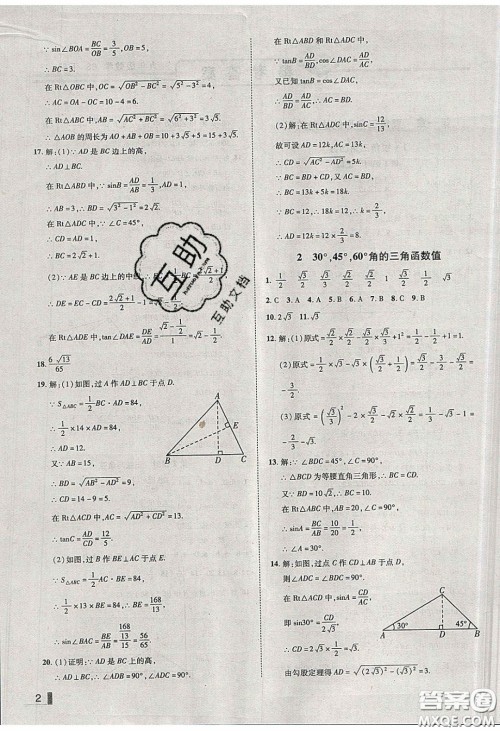 ∵sin∠BOA=BC/OB=3/5,OB=5,
∴BC=3.
在Rt△OBC中,OC=√(OB²-BC²)=√(5²-3²)=4.
∴AC=OA-OC=10-4=6.
在Rt△ABC中,AB=√(AC²+BC²)=√(6²+3²)=3√5,
∴△AOB的周长为AO+AB+OB=10+3√5+5=15+3√5.
17.解:(1)∵AD是BC边上的高,
∴AD⊥BC.
在Rt△ABD中,sinB=AD/AB=1/3,AD=1,
∴AB=3,BD=√(3²-1²)=2√2.
在Rt△ADC中,∵∠C=45°,
∴CD=AD=1,
∴BC=2√2+1.
(2)∵AE是BC边上的中线,
∴DE=CE-CD=(2√2+1)/2-1=√2-1/2.
在Rt△ADE中,tan∠DAE=DE/AD=(√2-1/2)/1=√2-1/2.
18.6√13/65
19.解:(1)如图,过A作AD⊥BC于点D.
∵S△ABC=1/2BC·AD=84,
∴1/2×14×AD=84,
∴AD=12.
又∵AB=15,
∴BD=√(AB²-AD²)=9.
∴CD=14-9=5.
在Rt△ADC中,AC=√(AD²+CD²)=13,
∴tanC=AD/CD=12/5.
(2)如图,过B作BE⊥AC于点E.
∵S△ABC=1/2AC·BE=84,
∴1/2×13×BE=84,∴BE=168/13,
∴sin∠BAC=BE/AB=(168/13)/15=56/65.
20.(1)证明:∵AD是BC上的高,
∴AD⊥BC,∴∠ADB=90°,∠ADC=90°.
A
E
B D C
2
在Rt△ABD和Rt△ADC中,
∵tanB=AD/BD,cos∠DAC=AD/AC,
又已知tanB=cos∠DAC,
∴AD/BD=AD/AC,
∴AC=BD.
(2)解:在Rt△ADC中,sinC=12/13,
故可设AD=12k,AC=13k,
∴CD=√(AC²-AD²)=5k.
∵BC=BD+CD,又AC=BD,
∴BC=13k+5k=18k.
由已知BC=12,∴18k=12,∴k=2/3,
∴AD=12k=12×2/3=8.
2 30°,45°,60°角的三角函数值
2.C 3.A 4.A
9.C
10.2√3
13.解:∵∠BDC=45°,∠C=90°,
∴△BDC为等腰直角三角形,
∴CD=BC=10.
∵AB=20,∠C=90°,
∴sinA=BC/AB=10/20=1/2,
∴∠A=30°.
14.解:如图,过点C作CD⊥AB于点D,
则∠ADC=∠BDC=90°.
在Rt△ACD中,sinA=CD/AC,
即sin30°=CD/2√3,
∴1/2=CD/2√3,
∴CD=√3.
C
A 30° D 45° B
由勾股定理得AD=√((2√3)²-(√3)²)=3.
互助
互助文档
答案圈
MXQE.COM